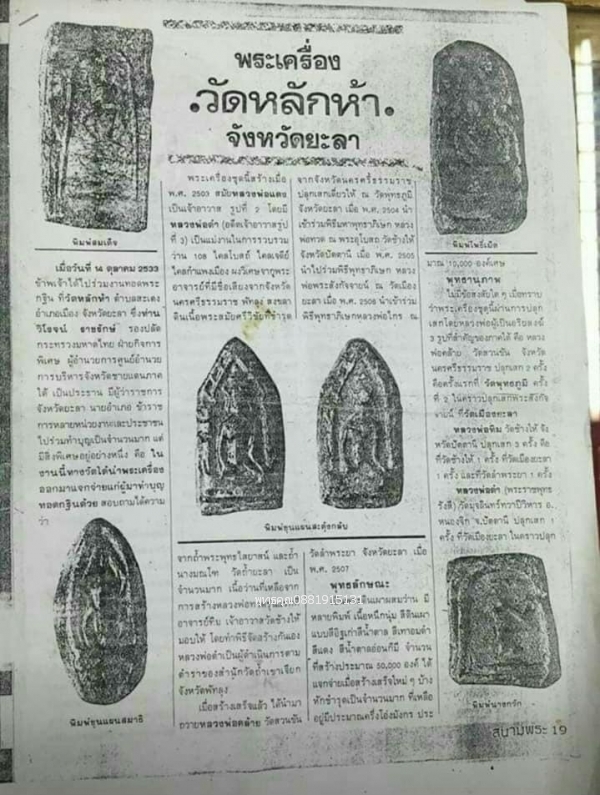 พระเครื่อง
.วัดหลักห้า.
จังหวัดยะลา
พิมพ์สมเด็จ
เมื่อวันที่ ๑๔ ตุลาคม 2533
ข้าพเจ้าได้ไปร่วมงานทอดพระ
กฐิน ที่วัดหลักห้า ตำบลสะเตง
อำเภอเมือง จังหวัดยะลา ซึ่งท่าน
วิโรจน์ ราชรักษ์ รองปลัด
กระทรวงมหาดไทย ฝ่ายกิจการ
พิเศษ ผู้อำนวยการศูนย์อำนวย
การบริหารจังหวัดชายแดนภาค
ใต้ เป็นประธาน มีผู้ว่าราชการ
จังหวัดยะลา นายอำเภอ ข้าราช
การหลายหน่วยงานและประชาชน
ไปร่วมทำบุญเป็นจำนวนมาก แต่
มีสิ่งพิเศษอยู่อย่างหนึ่ง คือ ใน
งานนี้ทางวัดได้นำพระเครื่อง
ออกมาแจกจ่ายแก่ผู้มาทำบุญ
ทอดกฐินด้วย สอบถามได้ความ
ว่า
พิมพ์ขุนแผนสมาธิ
พระเครื่องชุดนี้สร้างเมื่อ
พ.ศ. 2503 สมัยหลวงพ่อแดง
เป็นเจ้าอาวาส รูปที่ 2 โดยมี
หลวงพ่อดำ (อดีตเจ้าอาวาสรูป
ที่ 3) เป็นแม่งานในการรวบรวม
ว่าน 108 ไคลโบสถ์ ไคลเจดีย์
ไคลกำแพงเมือง ผงวิเศษจากพระ
อาจารย์ที่มีชื่อเสียงจากจังหวัด
นครศรีธรรมราช พัทลุง สงขลา
ดินเนื้อพระสมัยศรีวิชัยที่ชำรุด
พิมพ์ขุนแผนสะดุ้งกลับ
จากถ้ำพระพุทธไสยาสน์ และถ้ำ
นางมณโฑ วัดถ้ำยะลา เป็น
จำนวนมาก เนื้อว่านที่เหลือจาก
การสร้างหลวงพ่อทวด
อาจารย์ทิม เจ้าอาวาสวัดช้างให้
มอบให้ โดยทำพิธีจัดสร้างกันเอง
หลวงพ่อดำเป็นผู้ดำเนินการตาม
ตำราของสำนักวัดถ้ำเขาเจียก
จังหวัดพัทลุง
เมื่อสร้างเสร็จแล้ว ได้นำมา
ถวายหลวงพ่อคล้าย วัดสวนขัน
จากจังหวัดนครศรีธรรมราช
ปลุกเสกเดี่ยวให้ ณ วัดพุทธภูมิ
จังหวัดยะลา เมื่อ พ.ศ. 2504 นำ
เข้าร่วมพิธีมหาพุทธาภิเษก หลวง
พ่อทวด ณ พระอุโบสถวัดช้างให้
จังหวัดปัตตานี เมื่อ พ.ศ. 2505
นำไปร่วมพิธีพุทธาภิเษก หลวง
พ่อพระสังกัจจายน์ ณ วัดเมือง
ยะลา เมื่อ พ.ศ. 2506 นำเข้าร่วม
พิธีพุทธาภิเษกหลวงพ่อไกร ณ
วัดลำพระยา จังหวัดยะลา เมื่อ
พ.ศ. 2507
พุทธลักษณะ
สีดินเผาผสมว่าน มี
หลายพิมพ์ เนื้อหนึกนุ่ม สีดินเผา
แบบสีอิฐเก่าสีน้ำตาล สีเทาอมดำ
สีแดง สีน้ำตาลอ่อนก็มี จำนวน
ที่สร้างประมาณ 50,000 องค์ ได้
แจกจ่ายเมื่อสร้างเสร็จใหม่ ๆ บ้าง
หักชำรุดเป็นจำนวนมาก ที่เหลือ
อยู่มีประมาณครึ่งโอ่งมังกร ประ
พิมพ์โพธิ์เม็ด
มาณ 10,000 องค์เศษ
พุทธานุภาพ
ไม่มีข้อสงสัยใด ๆ เมื่อทราบ
ว่าพระเครื่องชุดนี้ผ่านการปลุก
เสกโดยหลวงพ่อผู้เป็นอริยสงฆ์
3 รูปที่สำคัญของภาคใต้ คือ หลวง
พ่อคล้าย วัดสวนขัน จังหวัด
นครศรีธรรมราช ปลุกเสก 2 ครั้ง
คือครั้งแรกที่ วัดพุทธภูมิ ครั้ง
ที่ 2 ในคราวปลุกเสกพระสังกัจ
จายน์ ที่วัดเมืองยะลา
หลวงพ่อทิม วัดช้างให้ จัง
หวัดปัตตานี ปลุกเสก 3 ครั้ง คือ
ที่วัดช้างให้ 1 ครั้ง ที่วัดเมืองยะลา
1 ครั้ง และที่วัดลำพระยา 1 ครั้ง
หลวงพ่อดำ (พระราชพุทธ
รังสี) วัดมุจลินทวาปีวิหาร อ.
หนองจิก จ.ปัตตานี ปลุกเสก 1
ครั้ง ที่วัดเมืองยะลา ในคราวปลุก
พิมพ์นาคปรก
พุทธคุณ0881915131
สนามพระ 19